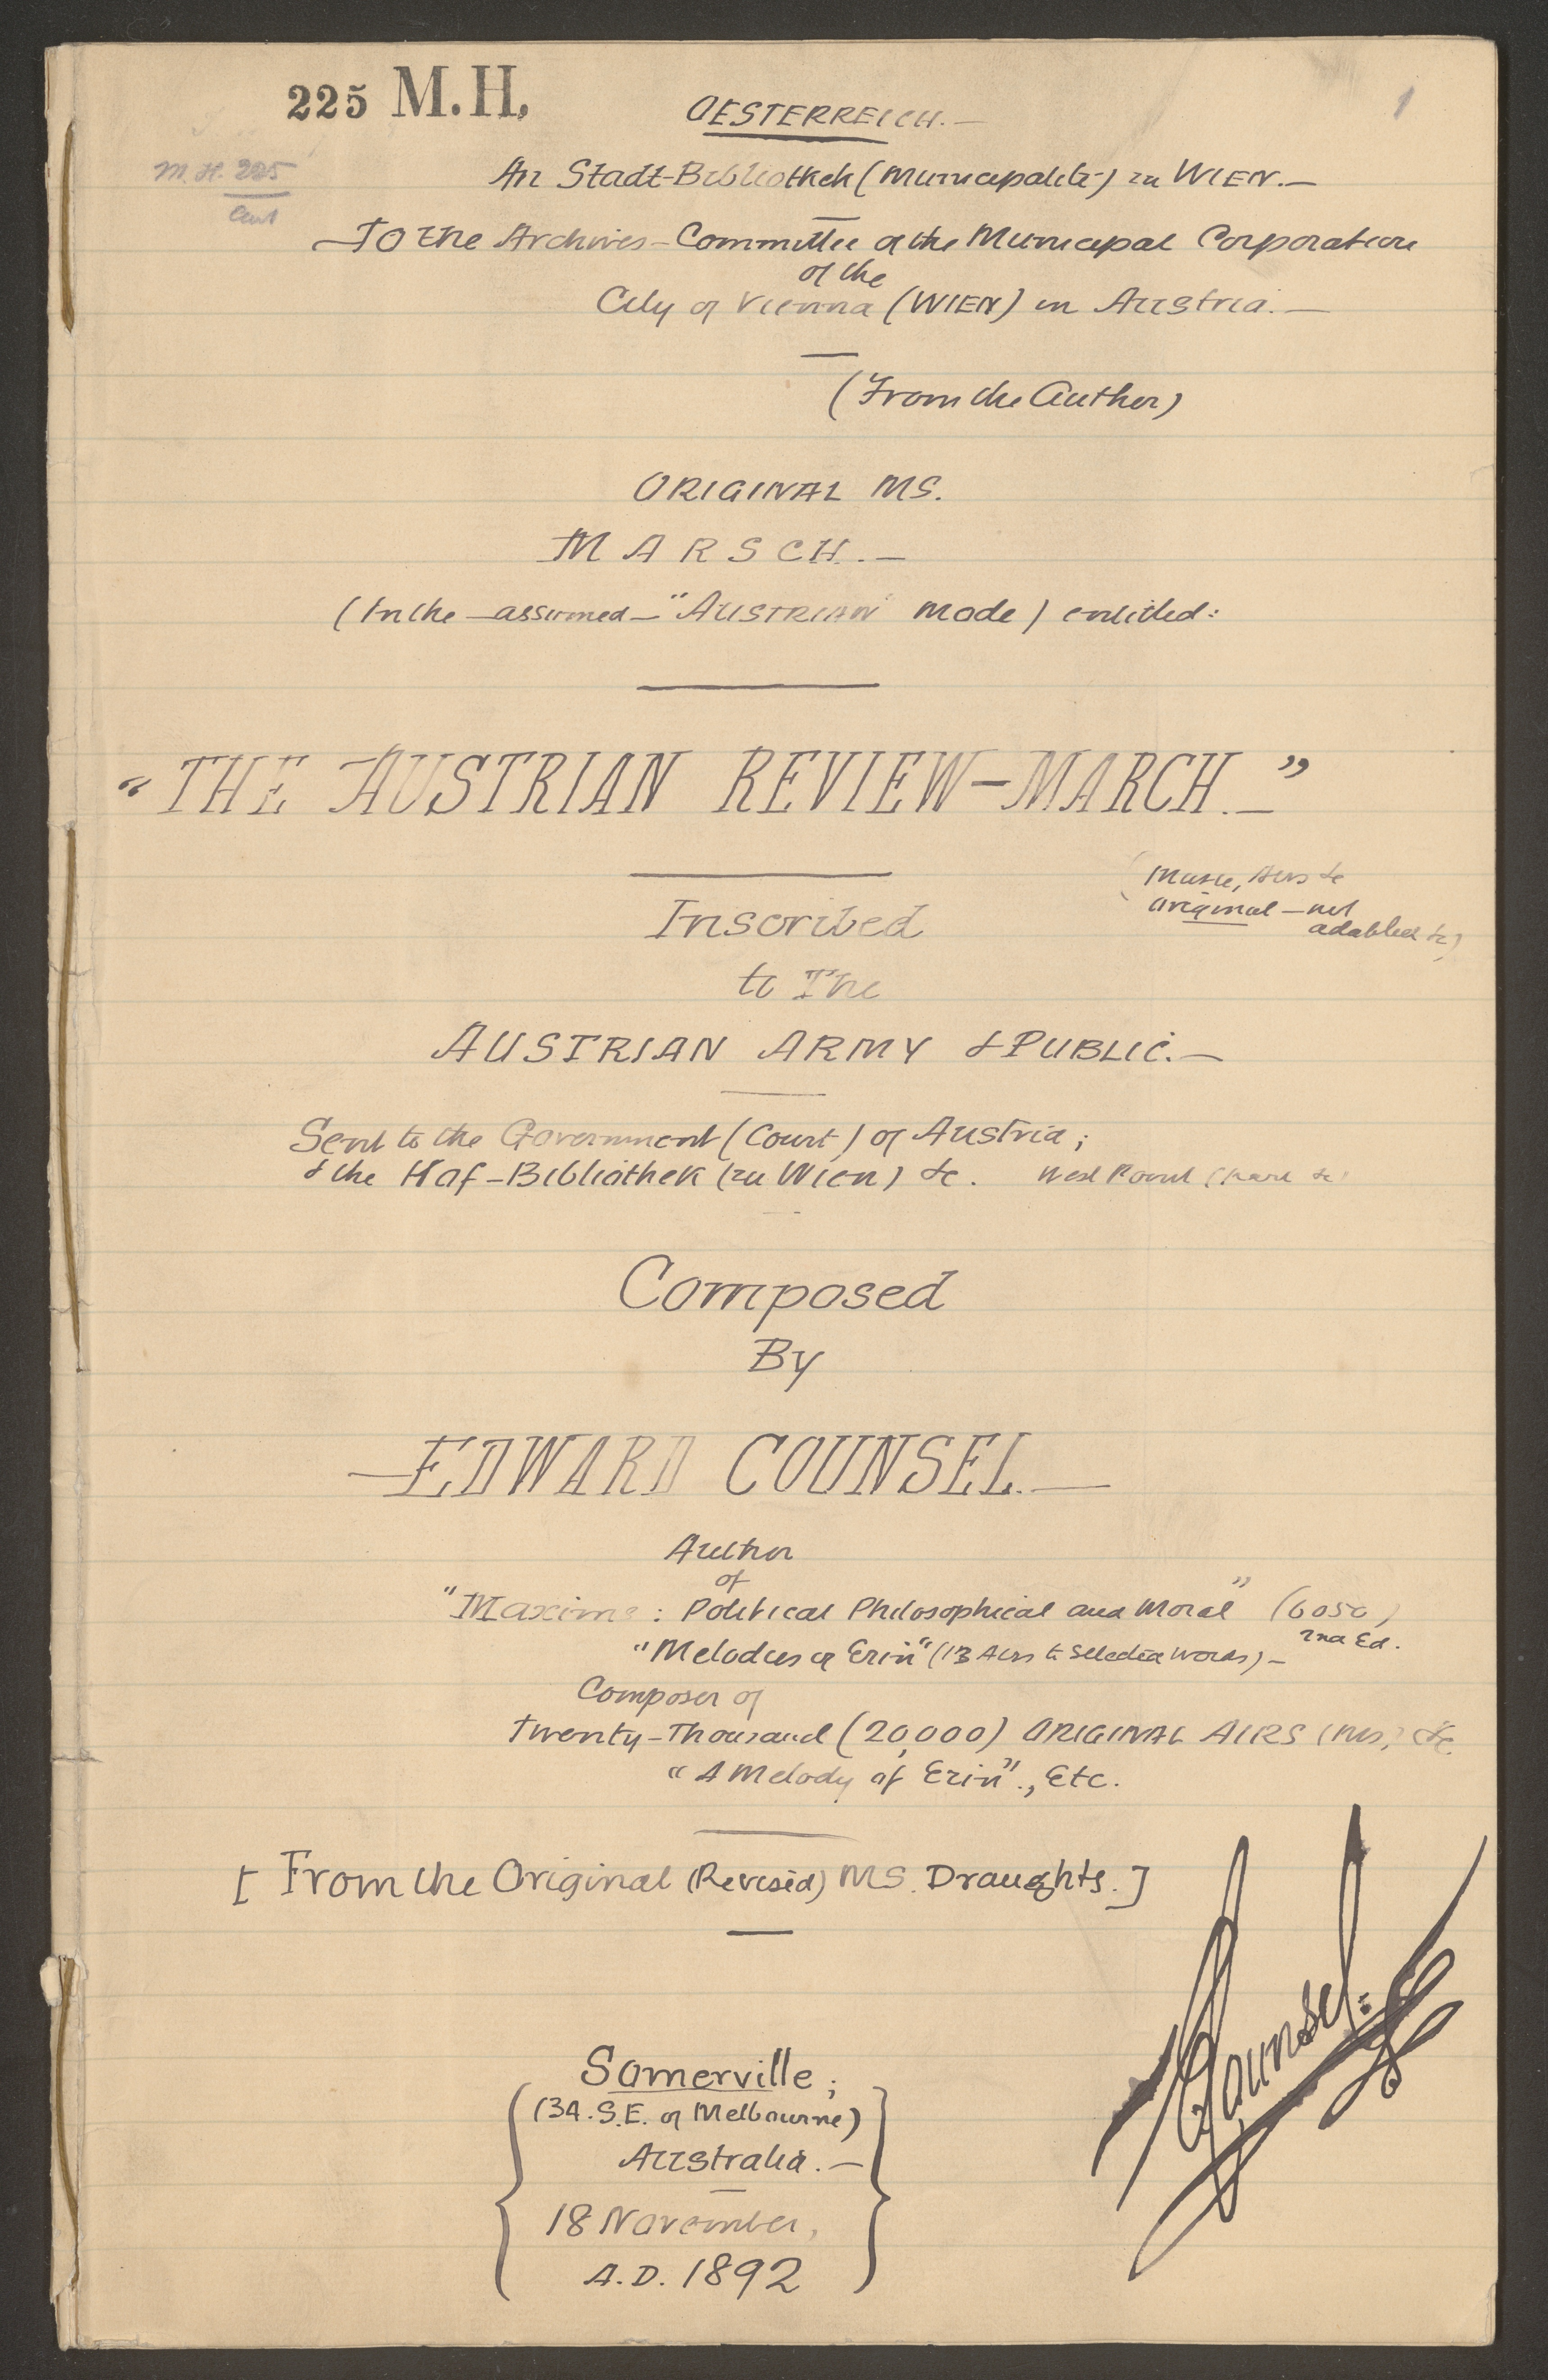 225 M.H.
1
OESTERREICH.—
M.H. 225
An Stadt-Bibliothek (Municipalité) zu WIEN.—
To the Archives-Committee of the Municipal Corporation
of the
City of Vienna (WIEN) in Austria.—
(From the Author)
ORIGINAL MS.
MARSCH.—
(In the—assumed—"AUSTRIAN" mode) entitled:
"THE AUSTRIAN REVIEW-MARCH.—"
(Music, Airs &c
original—not
adapted &c)
Inscribed
to The
AUSTRIAN ARMY & PUBLIC.—
Sent to the Government (Court) of Austria;
& the Hof-Bibliothek (zu Wien) &c.
Composed
By
—EDWARD COUNSEL.—
Author
of
"Maxims: Political Philosophical and Moral" (6050)
2nd Ed.
"Melodies of Erin" (13 Airs to Selected Words)—
Composer of
Twenty-Thousand (20,000) ORIGINAL AIRS (MS.) &c.
"A Melody of Erin"., Etc.
[From the Original (Revised) MS. Draughts.]
Counsel.
Somerville;
(34. S.E. of Melbourne)
Australia.—
18 November,
A.D. 1892